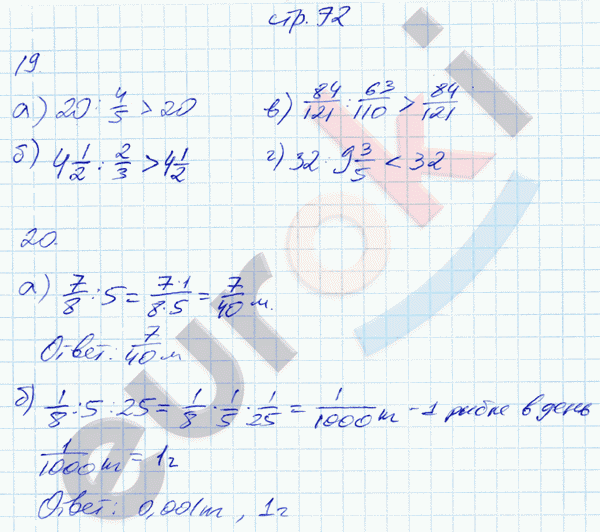 стр. 72
19.
а) 20 : 4/5 > 20
в) 84/121 : 63/110 > 84/121
б) 4 1/2 : 2/3 > 4 1/2
г) 32 : 9 3/5 < 32
20.
а) 7/8 : 5 = 7·1/8·5 = 7/40 м.
Ответ: 7/40 м
б) 1/8 : 5 : 25 = 1/8 · 1/5 · 1/25 = 1/1000 кг - 1 рыбке в день
1/1000 кг = 1 г
Ответ: 0,001 кг, 1 г
euroki